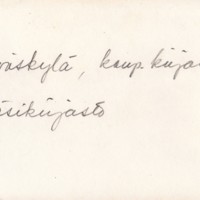 väskylä, kaup. kirja
äsikirjasto